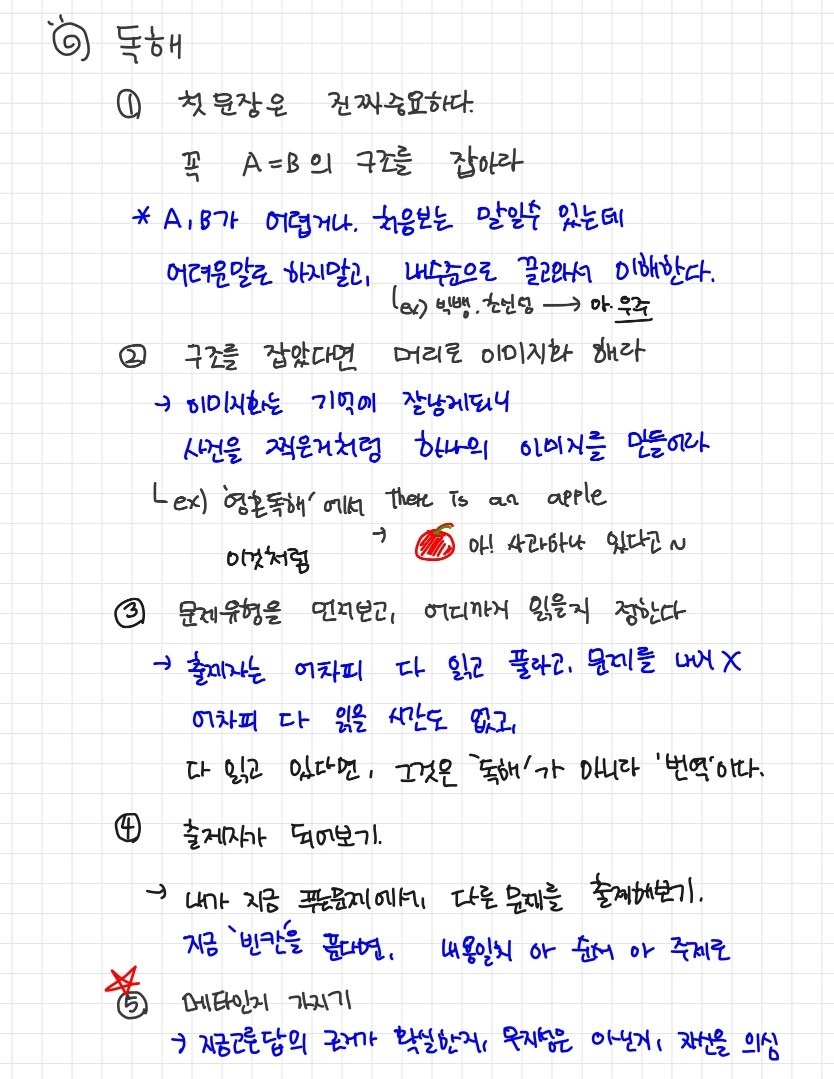 독해
① 첫 문장은 진짜중요하다.
꼭 A=B의 구조를 잡아라
* A, B가 어렵거나. 처음보는 말일수 있는데
어려운말로 하지말고, 내수준으로 끌고와서 이해한다.
ex) 빅뱅. 초신성 → 아. 우주
② 구조를 잡았다면 머리로 이미지화 해라
→ 이미지화는 기억에 잘남게되니
사진을 찍은거처럼 하나의 이미지를 만들어라
ex) '영혼독해'에서 there is an apple
이것처럼 → 아! 사과하나 있다고~
③ 문제유형을 먼저보고, 어디까지 읽을지 정한다
→ 출제자는 어차피 다 읽고 풀라고, 문제를 내거 X
어차피 다 읽을 시간도 없고,
다 읽고 있다면, 그것은 '독해'가 아니라 '번역'이다.
④ 출제자가 되어보기.
→ 내가 지금 푸는문제에서, 다른 문제를 출제해보기.
지금 '빈칸'을 푼다면, 내용일치 or 순서 or 주제로
⑤ 메타인지 가지기
→ 지금고른답의 근거가 확실한지, 무지성은 아닌지, 자신을 의심